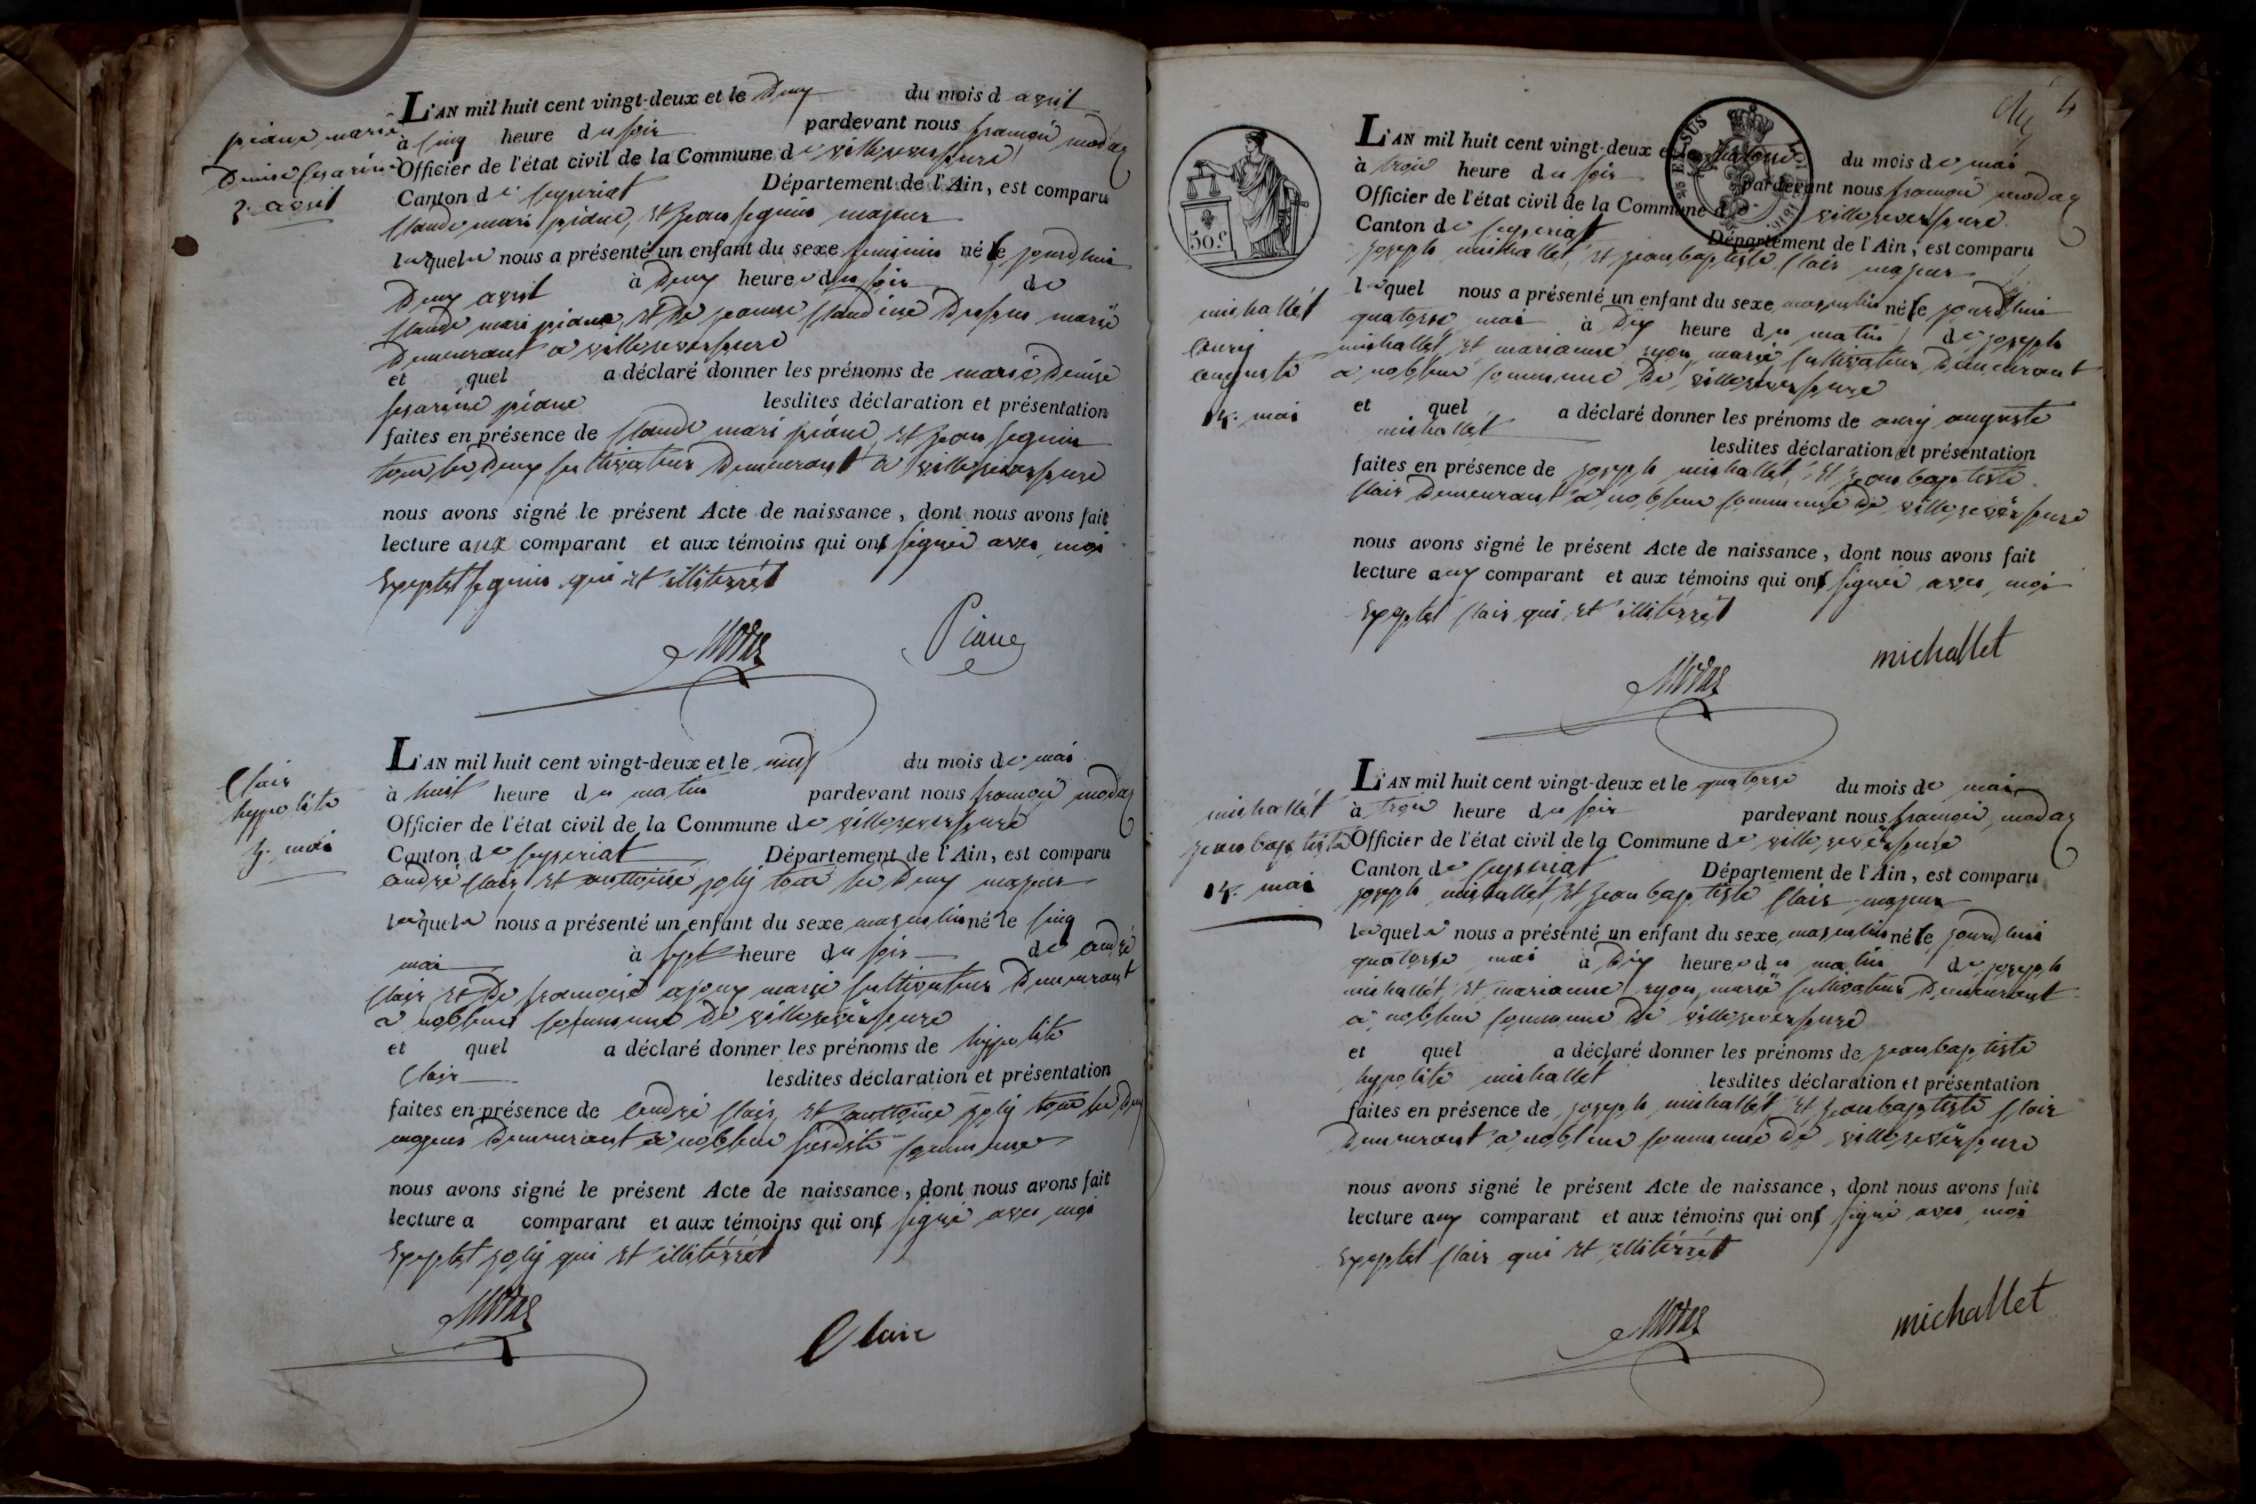 piane marie
Denise Cesarine
2. avril
L'AN mil huit cent vingt-deux et le Deux du mois d avril
à Cinq heure du soir pardevant nous françois modas
Officier de l'état civil de la Commune de villereversure
Canton de Ceyseriat Département de l'Ain, est comparu
Claude mari piane, et jean seguin majeur
lesquels nous a présenté un enfant du sexe feminin né le jourdhui
Deux avril à Deux heure du soir de
Claude mari piane, et de jeanne Claudine marie
Demeurant a villereversure
et quel a déclaré donner les prénoms de marie Denise
sesarine piane lesdites déclaration et présentation
faites en présence de Claude mari piane, et jean seguin
tous les Deux cultivateur Demeurant a villereversure
nous avons signé le présent Acte de naissance, dont nous avons fait
lecture aux comparant et aux témoins qui ont signer avec moi
Exeptet seguin qui et illiterrét
Modas Piane
Clair
hypolite
mai
L'AN mil huit cent vingt-deux et le neuf du mois de mai
à huit heure du matin pardevant nous françois modas
Officier de l'état civil de la Commune de villereversure
Canton de Ceyseriat Département de l'Ain, est comparu
andré Clair, et anttoine joly tous les Deux majeur
lesquels nous a présenté un enfant du sexe masculin né le Cinq
mai à sept heure du soir de andré
Clair et de françoise ajoux marié Cultivateur Demeurant
a noblens Commune de villereversure
et quel a déclaré donner les prénoms de hypolite
Clair lesdites déclaration et présentation
faites en présence de andré Clair, et anttoine joly tous les Deux
majeur Demeurant a noblens susdite Commune
nous avons signé le présent Acte de naissance, dont nous avons fait
lecture a comparant et aux témoins qui ont signé avec moi
Exeptet joly qui et illitérrét
Modas Clair
4
50.c
michallét
aury
auguste
14. mai
L'AN mil huit cent vingt-deux et le quatorse du mois de mai
à trois heure du soir pardevant nous françois modas
Officier de l'état civil de la Commune de villereversure
Canton de Ceyseriat Département de l'Ain, est comparu
joseph michallet, et jean baptiste Clair majeur
lequel nous a présenté un enfant du sexe masculin né le jourdhui
quatorse mai à Dix heure du matin de joseph
michallet et marianne ryon, marié Cultivateur Demeurant
a noblens Commune de villereversure
et quel a déclaré donner les prénoms de aury auguste
michallet lesdites déclaration et présentation
faites en présence de joseph michallet, et jean baptiste
Clair Demeurant a noblens Commune de villereversure
nous avons signé le présent Acte de naissance, dont nous avons fait
lecture aux comparant et aux témoins qui ont signer avec moi
Exeptet Clair qui et illitérrét
Modas michallet
michallét
jean baptiste
14. mai
L'AN mil huit cent vingt-deux et le quatorse du mois de mai
à trois heure du soir pardevant nous françois modas
Officier de l'état civil de la Commune de villereversure
Canton de Ceyseriat Département de l'Ain, est comparu
joseph michallet, et jean baptiste Clair majeur
lesquels nous a présenté un enfant du sexe masculin né le jourdhui
quatorse mai à Dix heure du matin de joseph
michallét, et marianne ryon, marié Cultivateur Demeurant
a noblens Commune de villereversure
et quel a déclaré donner les prénoms de jean baptiste
hypolite michallet lesdites déclaration et présentation
faites en présence de joseph michallet et jean baptiste Clair
Demeurant a noblens Commune de villereversure
nous avons signé le présent Acte de naissance, dont nous avons fait
lecture aux comparant et aux témoins qui ont signé avec moi
Exeptet Clair qui et illitérrét
Modas michallet